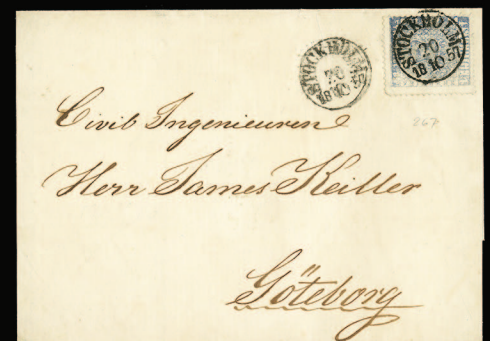 STOCKHOLM
20
18 10 57
STOCKHOLM
20
18 10 57
267
Civil Ingenieuren
Herr James Keiller
Göteborg